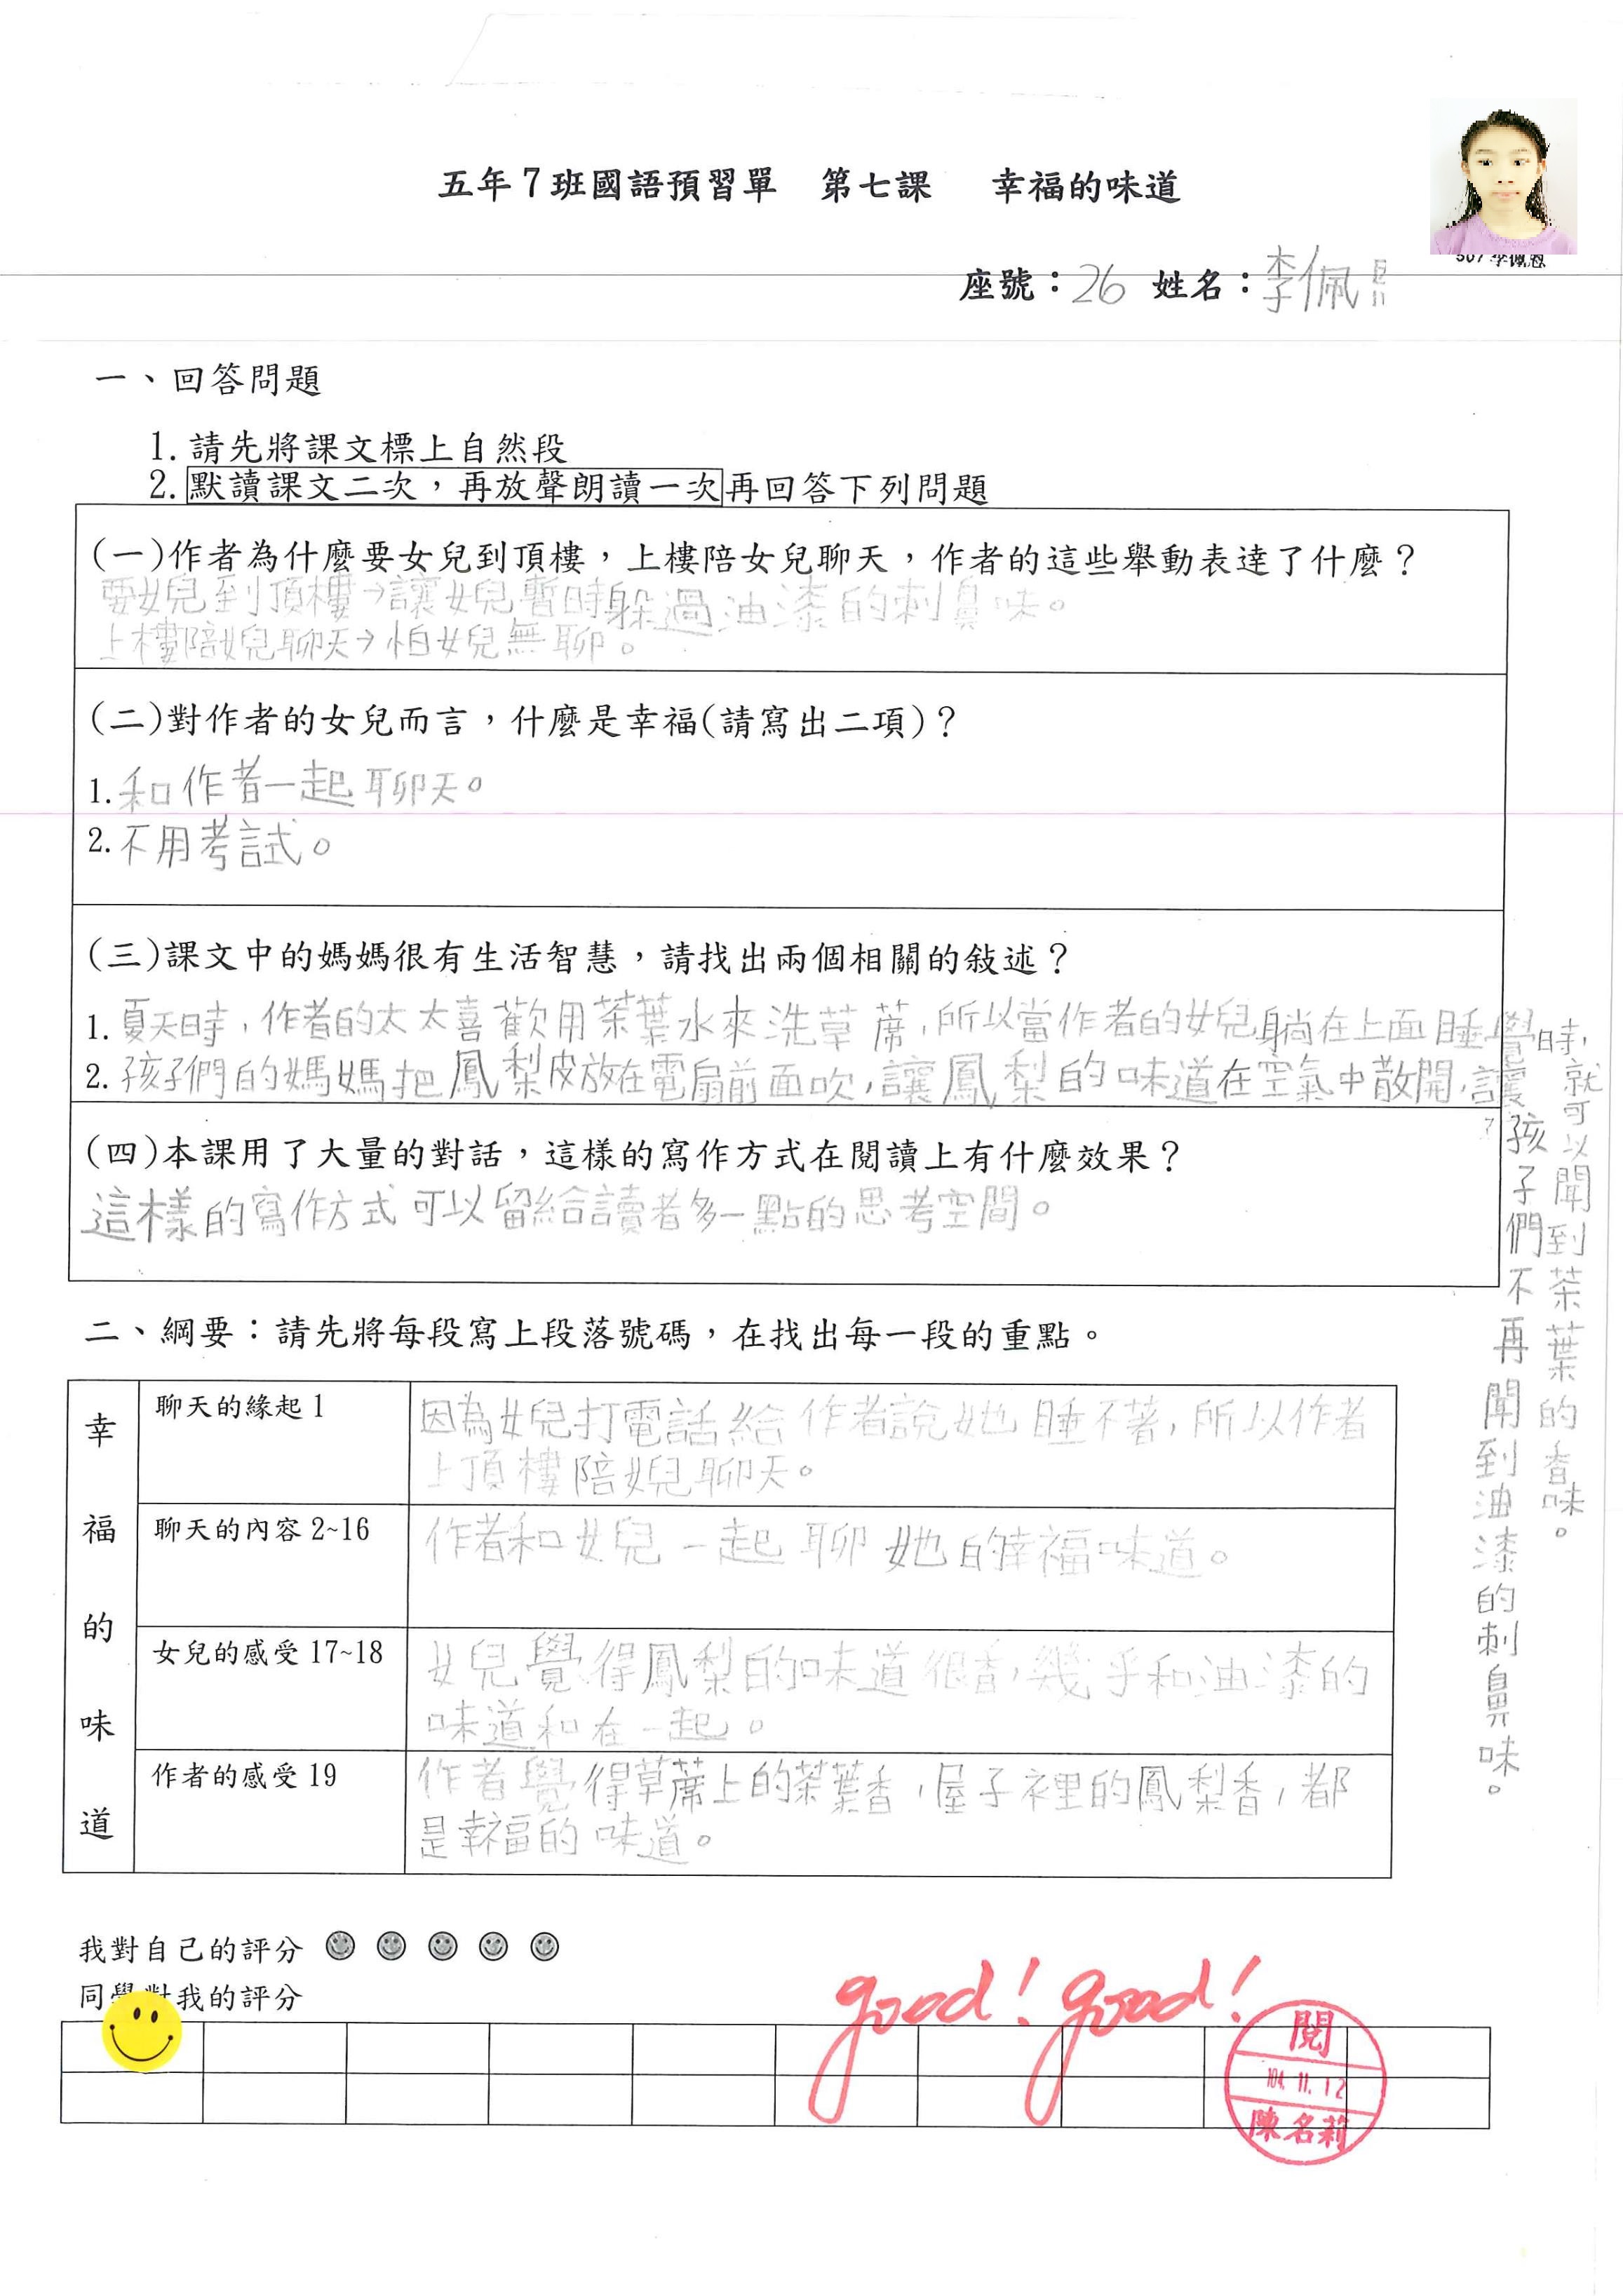 五年7班國語預習單　第七課　幸福的味道
507 李佩恩
座號：26 姓名：李佩
一、回答問題
1. 請先將課文標上自然段
2. 默讀課文二次，再放聲朗讀一次再回答下列問題
(一)作者為什麼要女兒到頂樓，上樓陪女兒聊天，作者的這些舉動表達了什麼？
要女兒到頂樓→讓女兒暫時躲過油漆的刺鼻味。
上樓陪女兒聊天→怕女兒無聊。
(二)對作者的女兒而言，什麼是幸福(請寫出二項)？
1. 和作者一起聊天。
2. 不用考試。
(三)課文中的媽媽很有生活智慧，請找出兩個相關的敍述？
1. 夏天時，作者的太太喜歡用茶葉水來洗草蓆，所以當作者的女兒躺在上面睡覺時，就可以聞到茶葉的香味。
2. 孩子們的媽媽把鳳梨皮放在電扇前面吹，讓鳳梨的味道在空氣中散開，讓孩子們不再聞到油漆的刺鼻味。
(四)本課用了大量的對話，這樣的寫作方式在閱讀上有什麼效果？
這樣的寫作方式可以留給讀者多一點的思考空間。
二、綱要：請先將每段寫上段落號碼，在找出每一段的重點。
幸福的味道
聊天的緣起 1
因為女兒打電話給作者說她睡不著，所以作者
上頂樓陪女兒聊天。
聊天的內容 2~16
作者和女兒一起聊她的幸福味道。
女兒的感受 17~18
女兒覺得鳳梨的味道很香，幾乎和油漆的
味道和在一起。
作者的感受 19
作者覺得草蓆上的茶葉香，屋子裡的鳳梨香，都
是幸福的味道。
我對自己的評分
同學對我的評分
good! good!
閱
104.11.12
陳名莉